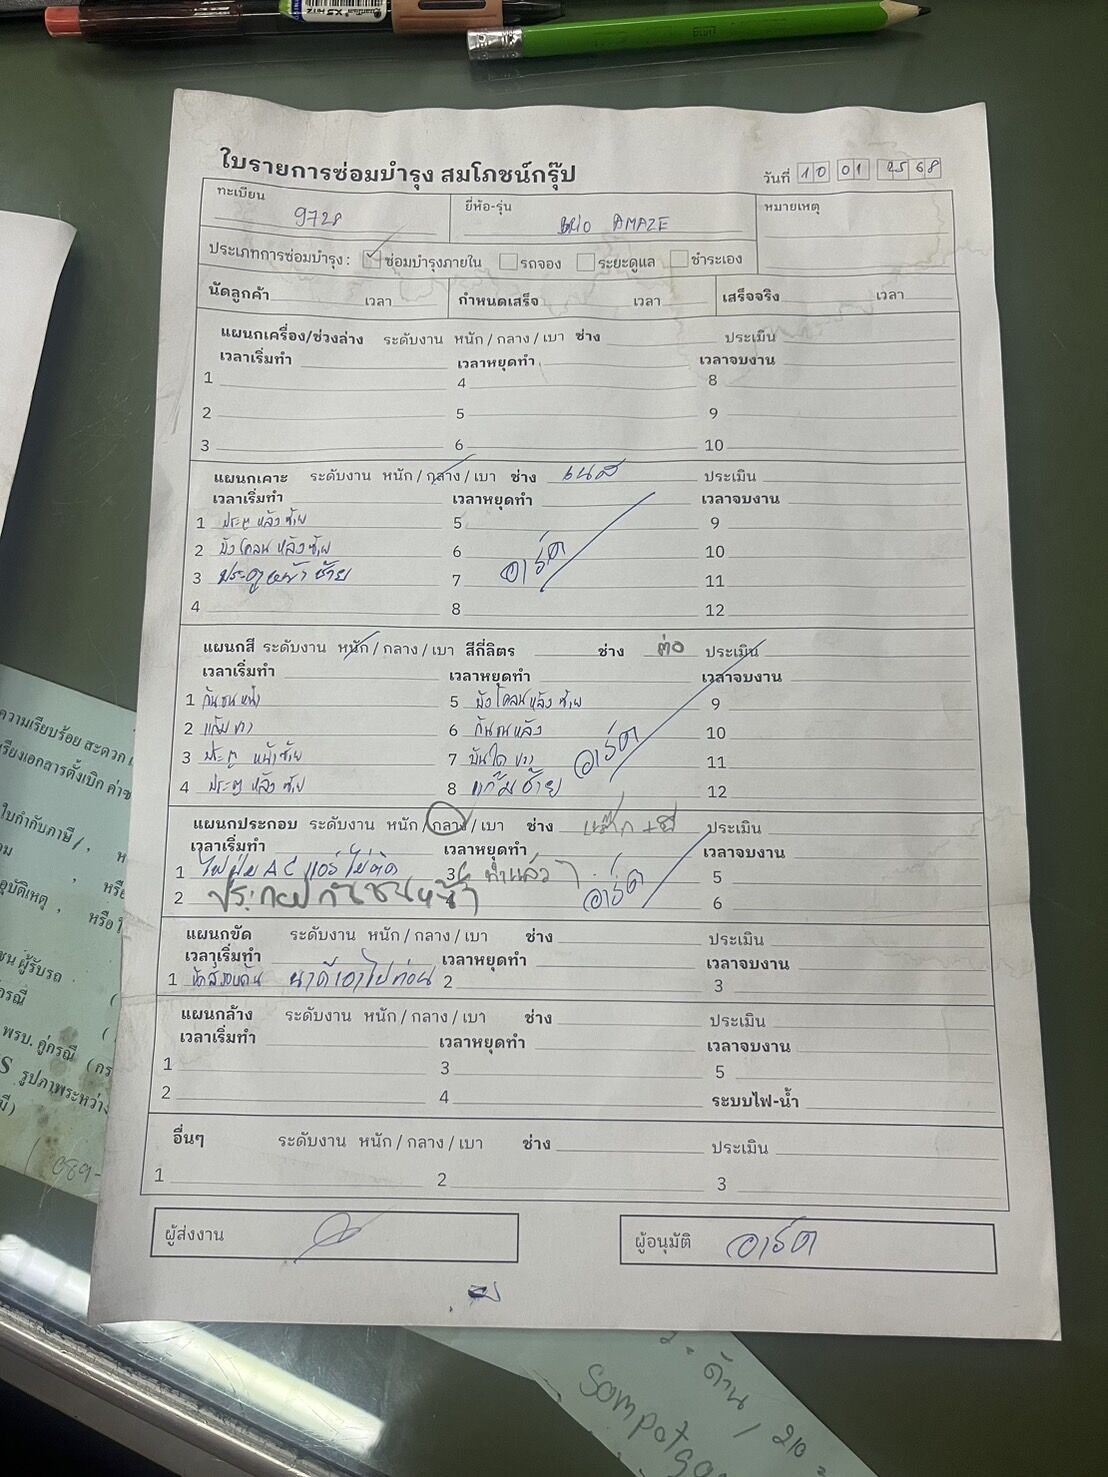 Quantum X5 HITZ
ใบรายการซ่อมบำรุง สมโภชน์กรุ๊ป
วันที่ 10 01 2568
ทะเบียน 9728
ยี่ห้อ-รุ่น BRIO AMAZE
หมายเหตุ
ประเภทการซ่อมบำรุง : ซ่อมบำรุงภายใน รถจอง ระยะดูแล ชำระเอง
นัดลูกค้า เวลา กำหนดเสร็จ เวลา เสร็จจริง เวลา
แผนกเครื่อง/ช่วงล่าง ระดับงาน หนัก / กลาง / เบา ช่าง ประเมิน
เวลาเริ่มทำ เวลาหยุดทำ เวลาจบงาน
1 4 8
2 5 9
3 6 10
แผนกเคาะ ระดับงาน หนัก / กลาง / เบา ช่าง ประเมิน
เวลาเริ่มทำ เวลาหยุดทำ เวลาจบงาน
1 ประตู หลัง ซ้าย 5 9
2 บังโคลน หลัง ซ้าย 6 อาร์ต 10
3 ประตูหน้า ซ้าย 7 11
4 8 12
แผนกสี ระดับงาน หนัก / กลาง / เบา สีกี่ลิตร ช่าง ต่อ ประเมิน
เวลาเริ่มทำ เวลาหยุดทำ เวลาจบงาน
1 กันชนหน้า 5 บังโคลนหลัง ซ้าย 9
2 แก้มขวา 6 กันชนหลัง 10
3 ประตู หน้าซ้าย 7 บันใดขวา อาร์ต 11
4 ประตู หลัง ซ้าย 8 แก้มซ้าย 12
แผนกประกอบ ระดับงาน หนัก / กลาง / เบา ช่าง ประเมิน
เวลาเริ่มทำ เวลาหยุดทำ เวลาจบงาน
1 ไฟปุ่ม AC แอร์ ไม่ติด 3 (ทำแล้ว) 5
2 ประกอบกันชนหน้า อาร์ต 6
แผนกขัด ระดับงาน หนัก / กลาง / เบา ช่าง ประเมิน
เวลาเริ่มทำ เวลาหยุดทำ เวลาจบงาน
1 ขัดสีรอบคัน 2 3
แผนกล้าง ระดับงาน หนัก / กลาง / เบา ช่าง ประเมิน
เวลาเริ่มทำ เวลาหยุดทำ เวลาจบงาน
1 3 5
2 4 ระบบไฟ-น้ำ
อื่นๆ ระดับงาน หนัก / กลาง / เบา ช่าง ประเมิน
1 2 3
ผู้ส่งงาน
ผู้อนุมัติ อาร์ต
ความเรียบร้อย สะดวก
เรียงเอกสารตั้งเบิก
ใบกำกับภาษี / ,
อุบัติเหตุ , หรือ
ผู้รับรถ
พรบ. คู่กรณี
S รูปภาพระหว่าง
089-
2. ด้าน / 210